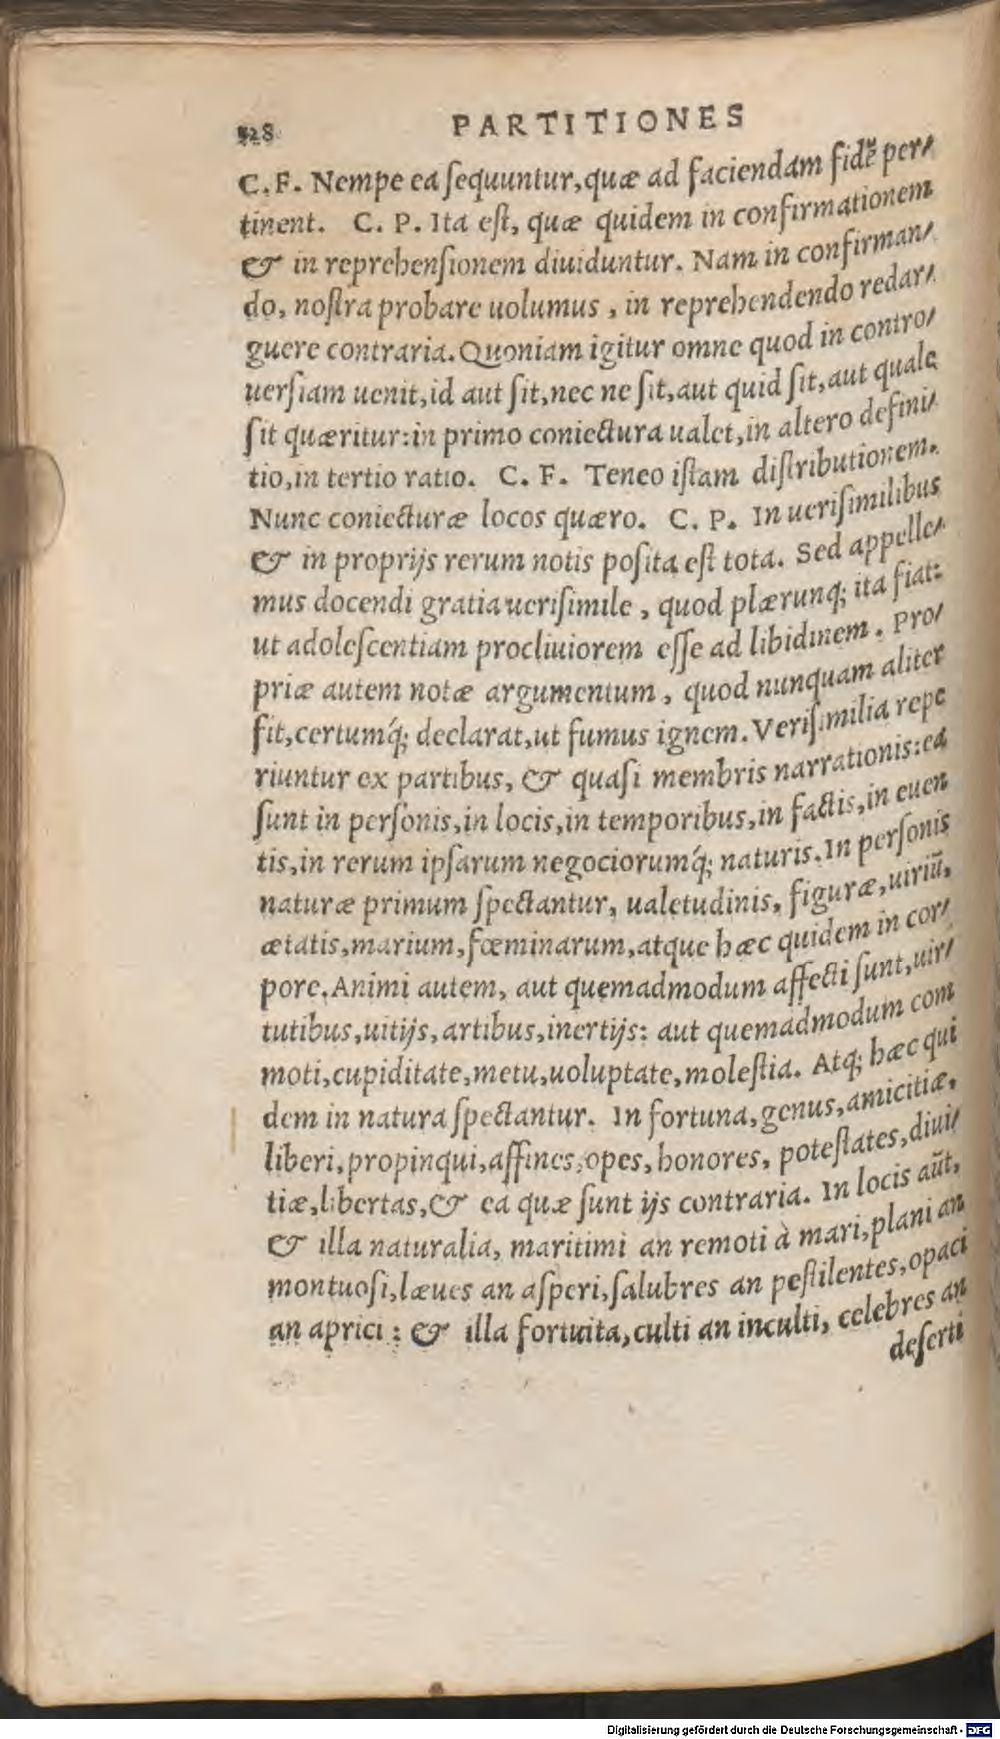 528 PARTITIONES
C. F. Nempe ea ſequuntur, quæ ad faciendam fidẽ per/
tinent. C. P. Ita eſt, quæ quidem in confirmationem
& in reprehenſionem diuiduntur. Nam in confirman/
do, noſtra probare uolumus, in reprehendendo redar/
guere contraria. Quoniam igitur omne quod in contro/
uerſiam uenit, id aut ſit, nec ne ſit, aut quid ſit, aut quale
ſit quæritur: in primo coniectura ualet, in altero defini/
tio, in tertio ratio. C. F. Teneo iſtam diſtributionem.
Nunc coniecturæ locos quæro. C. P. In ueriſimilibus
& in proprijs rerum notis poſita eſt tota. Sed appelle/
mus docendi gratia ueriſimile, quod plærunq; ita fiat:
ut adoleſcentiam procliuiorem eſſe ad libidinem. Pro/
priæ autem notæ argumentum, quod nunquam aliter
fit, certumq́; declarat, ut fumus ignem. Veriſimilia repe
riuntur ex partibus, & quaſi membris narrationis: ea
ſunt in perſonis, in locis, in temporibus, in factis, in euen
tis, in rerum ipſarum negociorumq́; naturis. In perſonis
naturæ primum ſpectantur, ualetudinis, figuræ, uiriũ,
ætatis, marium, fœminarum, atque hæc quidem in cor/
pore. Animi autem, aut quemadmodum affecti ſunt, uir/
tutibus, uitijs, artibus, inertijs: aut quemadmodum com
moti, cupiditate, metu, uoluptate, moleſtia. Atq; hæc qui
dem in natura ſpectantur. In fortuna, genus, amicitiæ,
liberi, propinqui, affines, opes, honores, poteſtates, diui/
tiæ, libertas, & ea quæ ſunt ijs contraria. In locis aũt,
& illa naturalia, maritimi an remoti à mari, plani an
montuoſi, læues an aſperi, ſalubres an peſtilentes, opaci
an aprici: & illa fortuita, culti an inculti, celebres an
deſerti
Digitalisierung gefördert durch die Deutsche Forschungsgemeinschaft - DFG